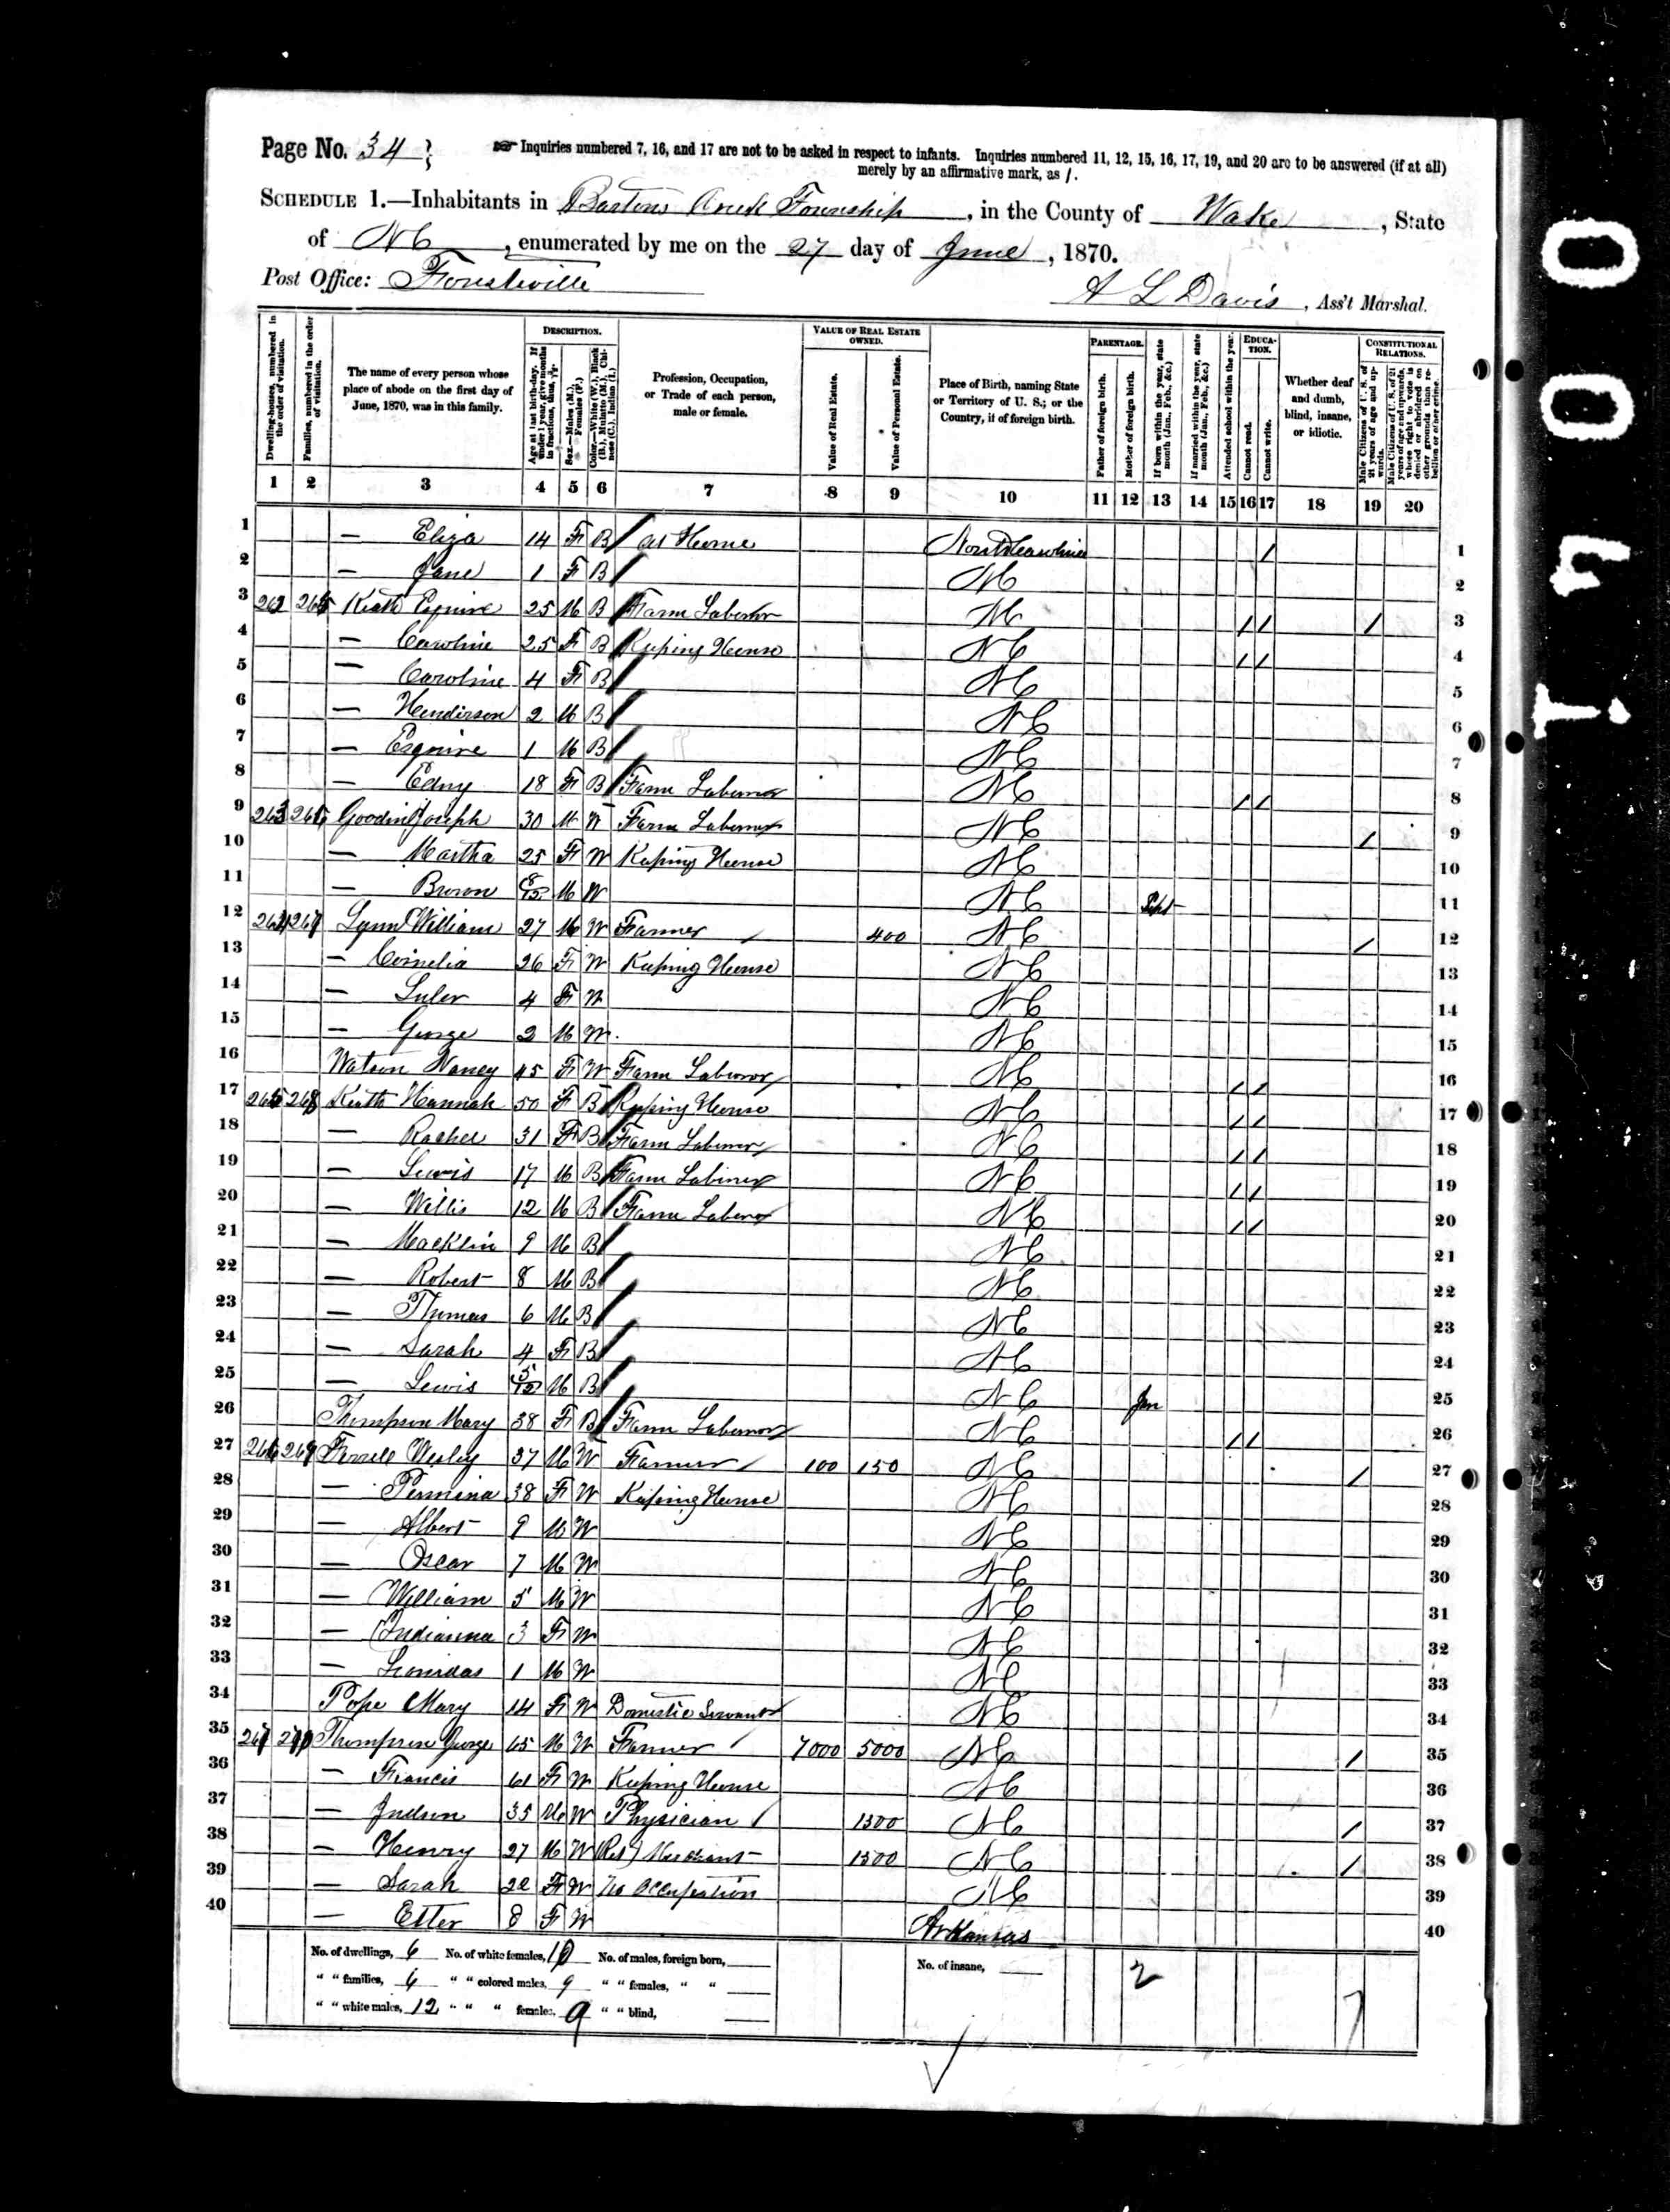 Page No. 34
Inquiries numbered 7, 16, and 17 are not to be asked in respect to infants. Inquiries numbered 11, 12, 15, 16, 17, 19, and 20 are to be answered (if at all)
merely by an affirmative mark, as /.
SCHEDULE 1.—Inhabitants in Bartons Creek Township, in the County of Wake, State
of NC, enumerated by me on the 27 day of June, 1870.
Post Office: Forestville
A L Davis, Ass't Marshal.
Dwelling-houses, numbered in the order of visitation.
Families, numbered in the order of visitation.
The name of every person whose place of abode on the first day of June, 1870, was in this family.
DESCRIPTION.
Age at last birth-day. If under 1 year, give months in fractions, thus, 3/12
Sex.—Males (M.), Females (F.)
Color.—White (W.), Black (B.), Mulatto (M.), Chinese (C.), Indian (I.)
Profession, Occupation, or Trade of each person, male or female.
VALUE OF REAL ESTATE OWNED.
Value of Real Estate.
Value of Personal Estate.
Place of Birth, naming State or Territory of U. S.; or the Country, if of foreign birth.
PARENTAGE.
Father of foreign birth.
Mother of foreign birth.
If born within the year, state month (Jan., Feb., &c.)
If married within the year, state month (Jan., Feb., &c.)
Attended school within the year.
EDUCATION.
Cannot read.
Cannot write.
Whether deaf and dumb, blind, insane, or idiotic.
CONSTITUTIONAL RELATIONS.
Male Citizens of U. S. of 21 years of age and upwards.
Male Citizens of U. S. of 21 years of age and upwards, whose right to vote is denied or abridged on other grounds than rebellion or other crime.
1 2 3 4 5 6 7 8 9 10 11 12 13 14 15 16 17 18 19 20
1 — Eliza 14 F B At Home North Carolina / 1
2 — Jane 1 F B NC 2
3 262 265 Keith Esquire 25 M B Farm Laborer NC / / / 3
4 — Caroline 25 F B Keping House NC / / 4
5 — Caroline 4 F B NC 5
6 — Henderson 2 M B NC 6
7 — Esquire 1 M B NC 7
8 — Edny 18 F B Farm Laborer NC / / 8
9 263 266 Goodin Joseph 30 M W Farm Laborer NC / 9
10 — Martha 25 F W Keping House NC 10
11 — Brown 8/12 M W NC Sept 11
12 264 267 Lynn William 27 M W Farmer 400 NC / 12
13 — Cornelia 26 F W Keping House NC 13
14 — Luler 4 F W NC 14
15 — George 2 M W NC 15
16 Watson Nancy 45 F W Farm Laborer NC / / 16
17 265 268 Keith Hannah 50 F B Keping House NC / / 17
18 — Rachel 31 F B Farm Laborer NC / / 18
19 — Lewis 17 M B Farm Laborer NC / / 19
20 — Willis 12 M B Farm Laborer NC / / 20
21 — Macklin 9 M B NC 21
22 — Robert 8 M B NC 22
23 — Thomas 6 M B NC 23
24 — Sarah 4 F B NC 24
25 — Lewis 5/12 M B NC Jan 25
26 Thompson Mary 38 F B Farm Laborer NC / / 26
27 266 269 Ferrell Wesley 37 M W Farmer 100 150 NC / 27
28 — Permina 38 F W Keping House NC 28
29 — Albert 9 M W NC 29
30 — Oscar 7 M W NC 30
31 — William 5 M W NC 31
32 — Indianna 3 F W NC 32
33 — Leonidas 1 M W NC 33
34 Pope Mary 14 F W Domestic Servant NC 34
35 267 270 Thompson George 65 M W Farmer 7000 5000 NC / 35
36 — Francis 61 F W Keping House NC 36
37 — Judson 35 M W Physician 1300 NC / 37
38 — Henry 27 M W Ret Merchant 1500 NC / 38
39 — Sarah 22 F W No Occupation NC 39
40 — Etter 8 F W Arkansas 40
No. of dwellings, 6 No. of white females, 10 No. of males, foreign born,
" " families, 6 " " colored males, 9 " " females, " "
" " white males, 12 " " " females, 9 " " blind,
No. of insane,
2
7